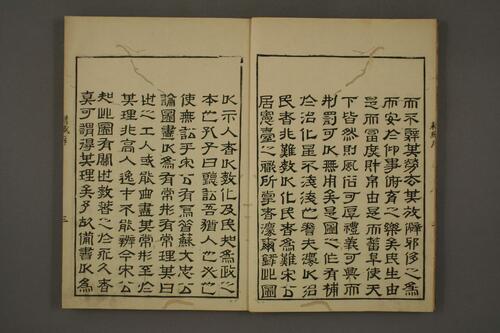 而不辭其勞其放辟邪侈之爲
而安於仰事俯育之樂矣民生由
是而富庶財帛由是而蕃阜使天
下皆然則風俗可厚禮義可興而
刑罰可以無用矣是圖之作有補
於治化豈不淺淺也哉夫灋以治
民者非難以化民者爲難宋公
居憲臺之職所掌者灋爾此圖
以示人者以敎化及民知爲政之
本也孔子曰聽訟吾猶人也必也
使無訟乎宋公有焉昔蘇文忠公
論圖畫以爲有常形有常理其曰
世之工人或能曲盡其常形至於
其理非高人逸才不能辨今宋公
知此圖有關世敎之於永久者
真可謂得其理矣予故備書以爲
三